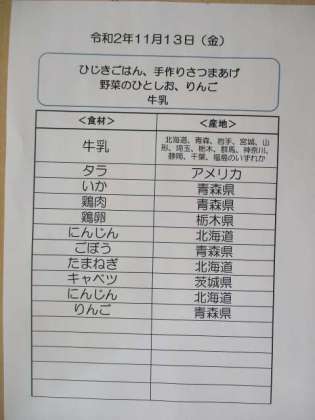 令和2年11月13日（金）
ひじきごはん、手作りさつまあげ
野菜のひとしお、りんご
牛乳
＜食材＞ ＜産地＞
牛乳 北海道、青森、岩手、宮城、山
形、埼玉、栃木、群馬、神奈川、
静岡、千葉、福島のいずれか
タラ アメリカ
いか 青森県
鶏肉 青森県
鶏卵 栃木県
にんじん 北海道
ごぼう 青森県
たまねぎ 北海道
キャベツ 茨城県
にんじん 北海道
りんご 青森県